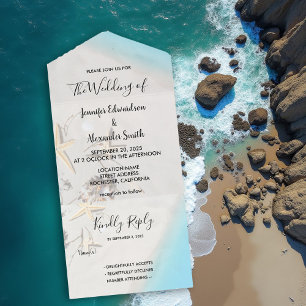 PLEASE JOIN US FOR
The Wedding of
Jennifer Edwardson
&
Alexander Smith
SEPTEMBER 20, 2025
AT 2 O'CLOCK IN THE AFTERNOON
LOCATION NAME
STREET ADDRESS
ROCHESTER, CALIFORNIA
reception to follow
Kindly Reply
BY SEPTEMBER 4, 2025
Name(s)
DELIGHTFULLY ACCEPTS
REGRETFULLY DECLINES
NUMBER ATTENDING